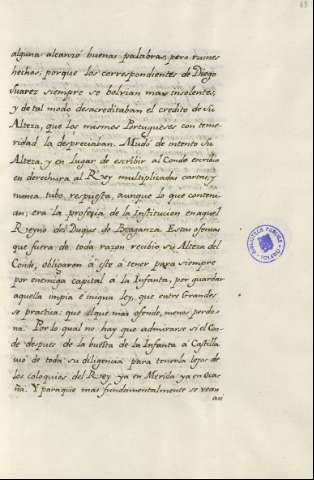 alguna alcanzó buenas palabras, pero ruines
hechos, porque los correspondientes de Diego
Suarez siempre se bolvian mas insolentes,
y de tal modo desacreditaban el credito de Su
Alteza, que los mismos Portugueses con teme-
ridad la despreciaban. Mudó de intento Su
Alteza, y en lugar de escribir al Conde escribio
en derechura al Rey multiplicadas cartas, y
nunca tubo respuesta, aunque lo que conteni-
an, era la profecia de la Institucion en aquel
Reyno del Duque de Braganza. Estas ofensas
que fuera de toda razon recibio su Alteza del
Conde, obligaron à éste à tener para siempre
por enemiga capital à la Infanta, por guardar
aquella impia è iniqua ley, que entre Grandes
se practica: que el que mas ofende, menos perdo-
na. Por lo qual no hay que admirarse si el Con-
de despues de la buelta de la Infanta à Castilla
usó de toda su diligencia para tenerla lejos de
los coloquios del Rey ya en Merida ya en Oca-
ña. Y para que mas fundamentalmente se vean
BIBLIOTECA PUBLICA
TOLEDO